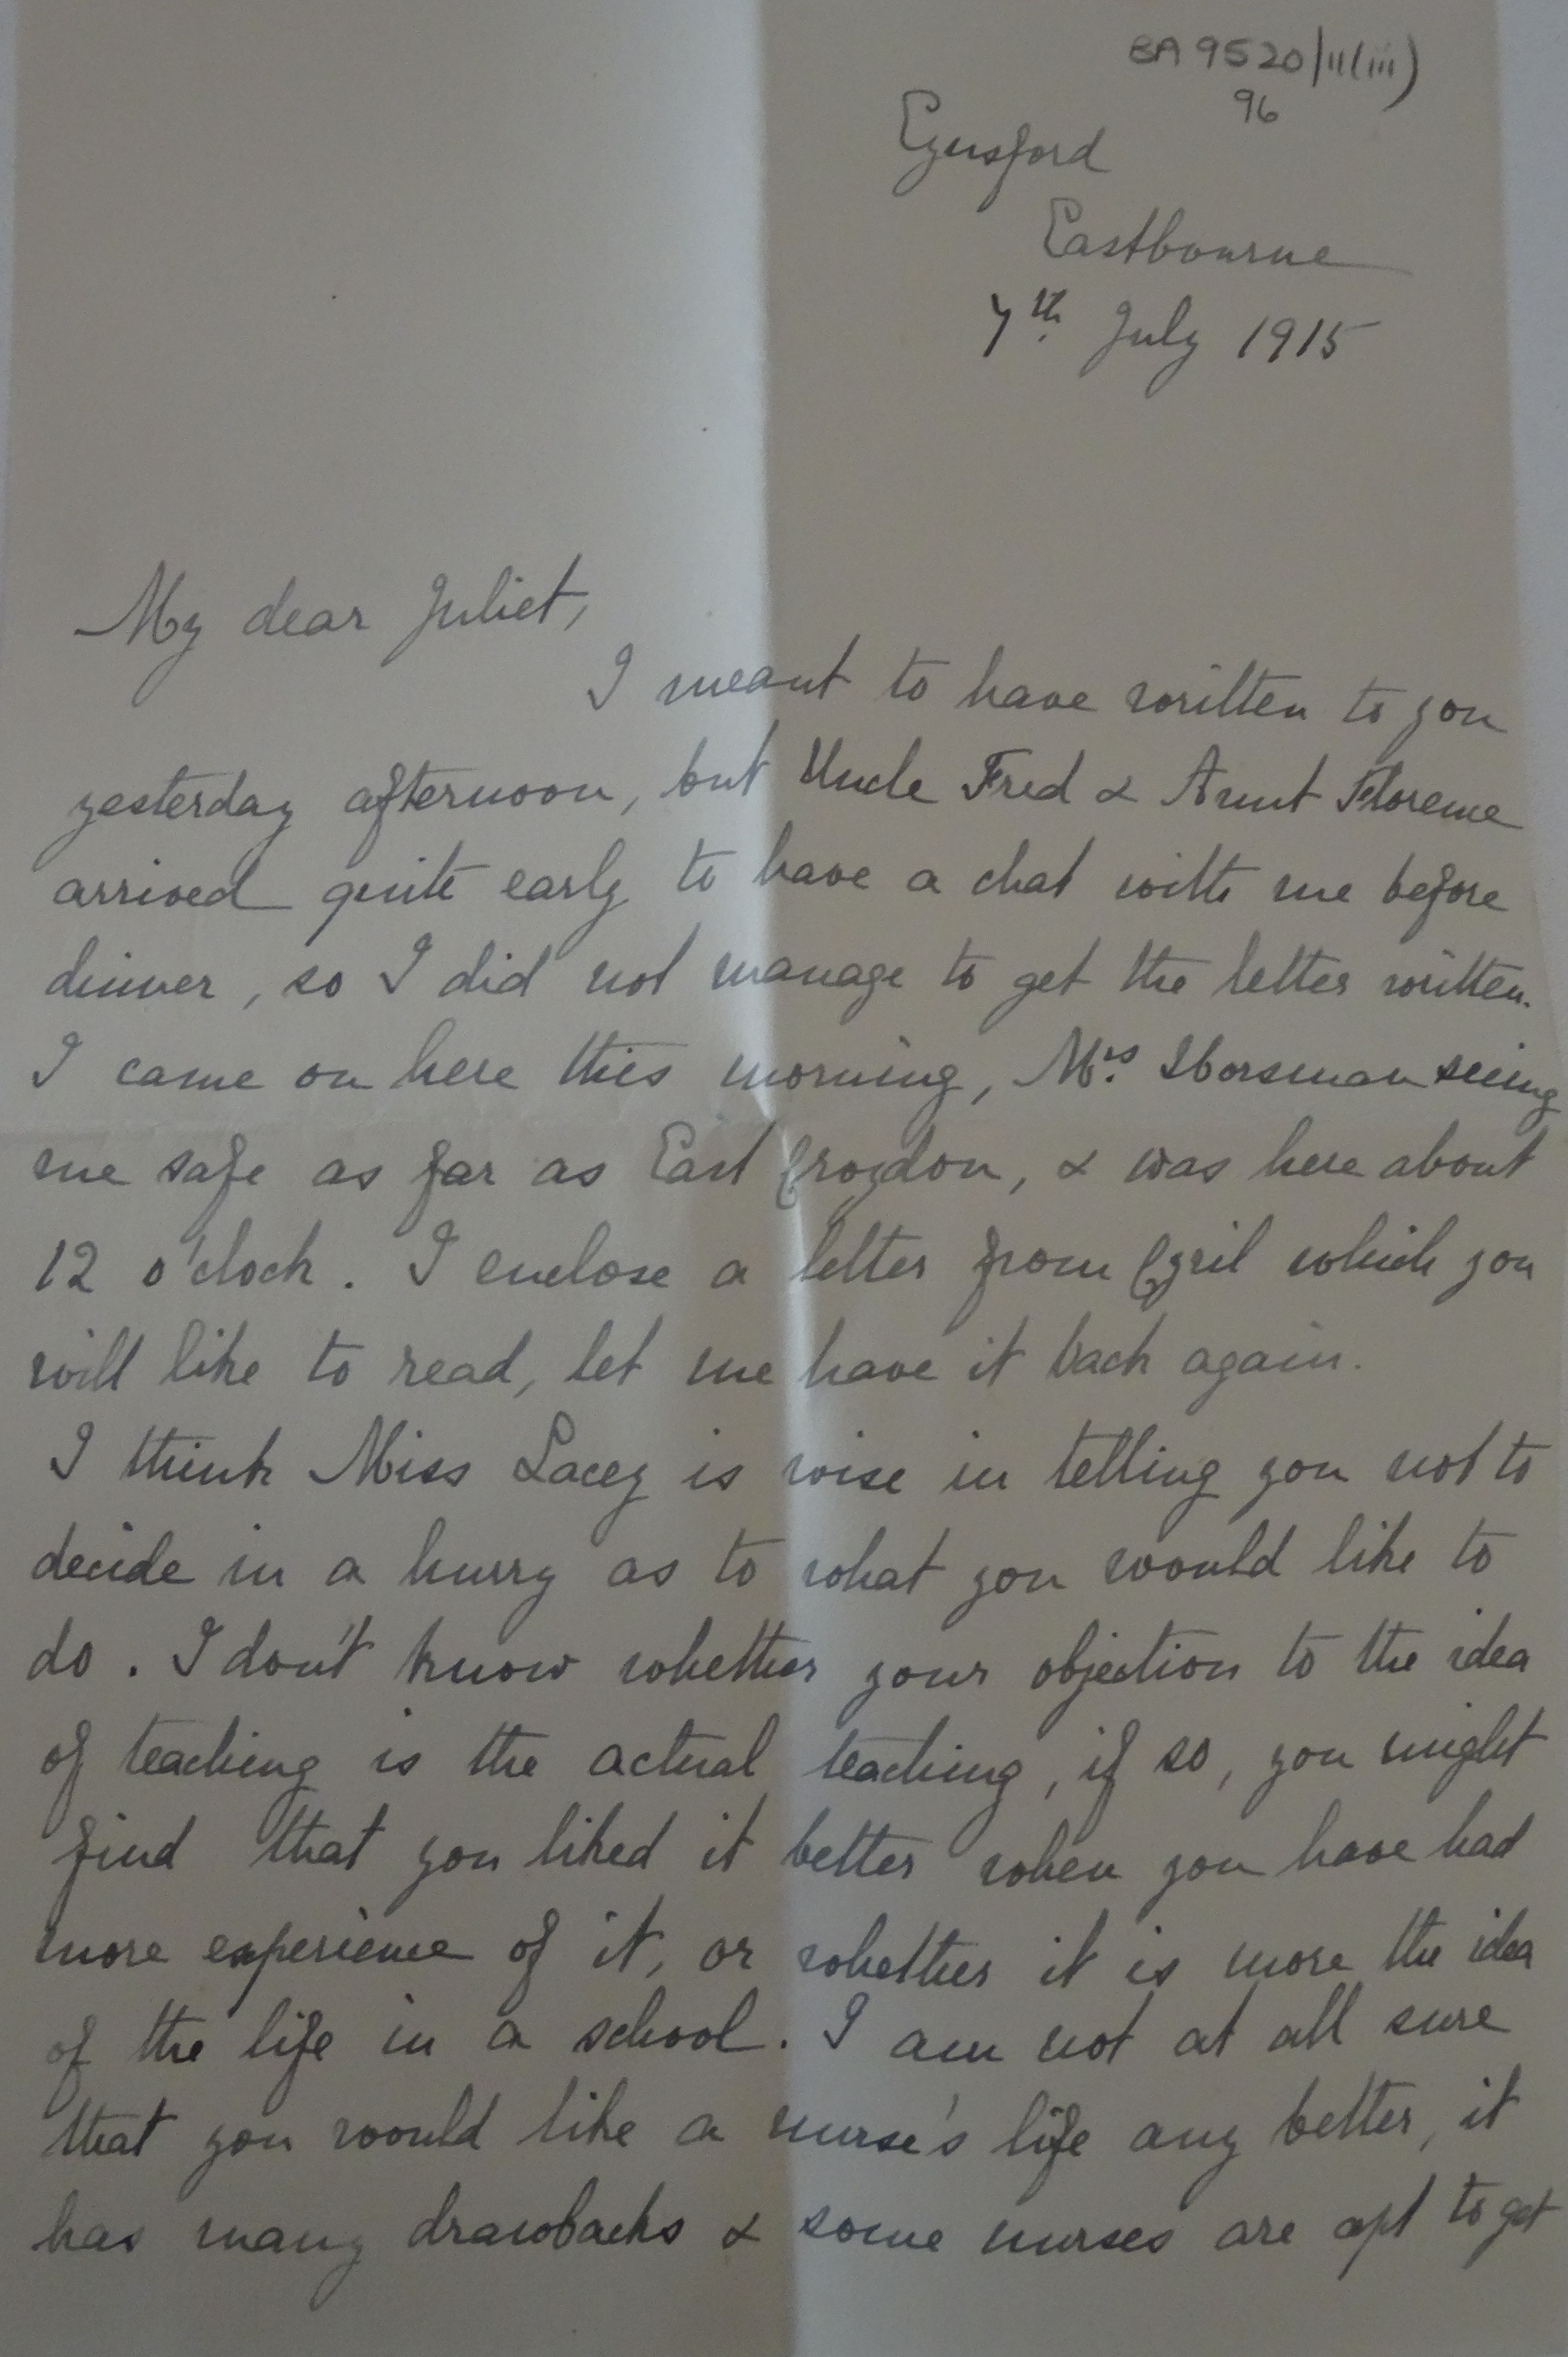 BA 9520/11(iii)
96
Eynsford
Eastbourne
7th July 1915
My dear Juliet,
I meant to have written to you
yesterday afternoon, but Uncle Fred & Aunt Florence
arrived quite early to have a chat with me before
dinner, so I did not manage to get the letter written.
I came on here this morning, Mrs. Horsman seeing
me safe as far as East Croydon, & was here about
12 o'clock. I enclose a letter from Cyril which you
will like to read, let me have it back again.
I think Miss Lacey is wise in telling you not to
decide in a hurry as to what you would like to
do. I don't know whether your objection to the idea
of teaching is the actual teaching, if so, you might
find that you liked it better when you have had
more experience of it, or whether it is more the idea
of the life in a school. I am not at all sure
that you would like a nurse's life any better, it
has many drawbacks & some nurses are apt to get